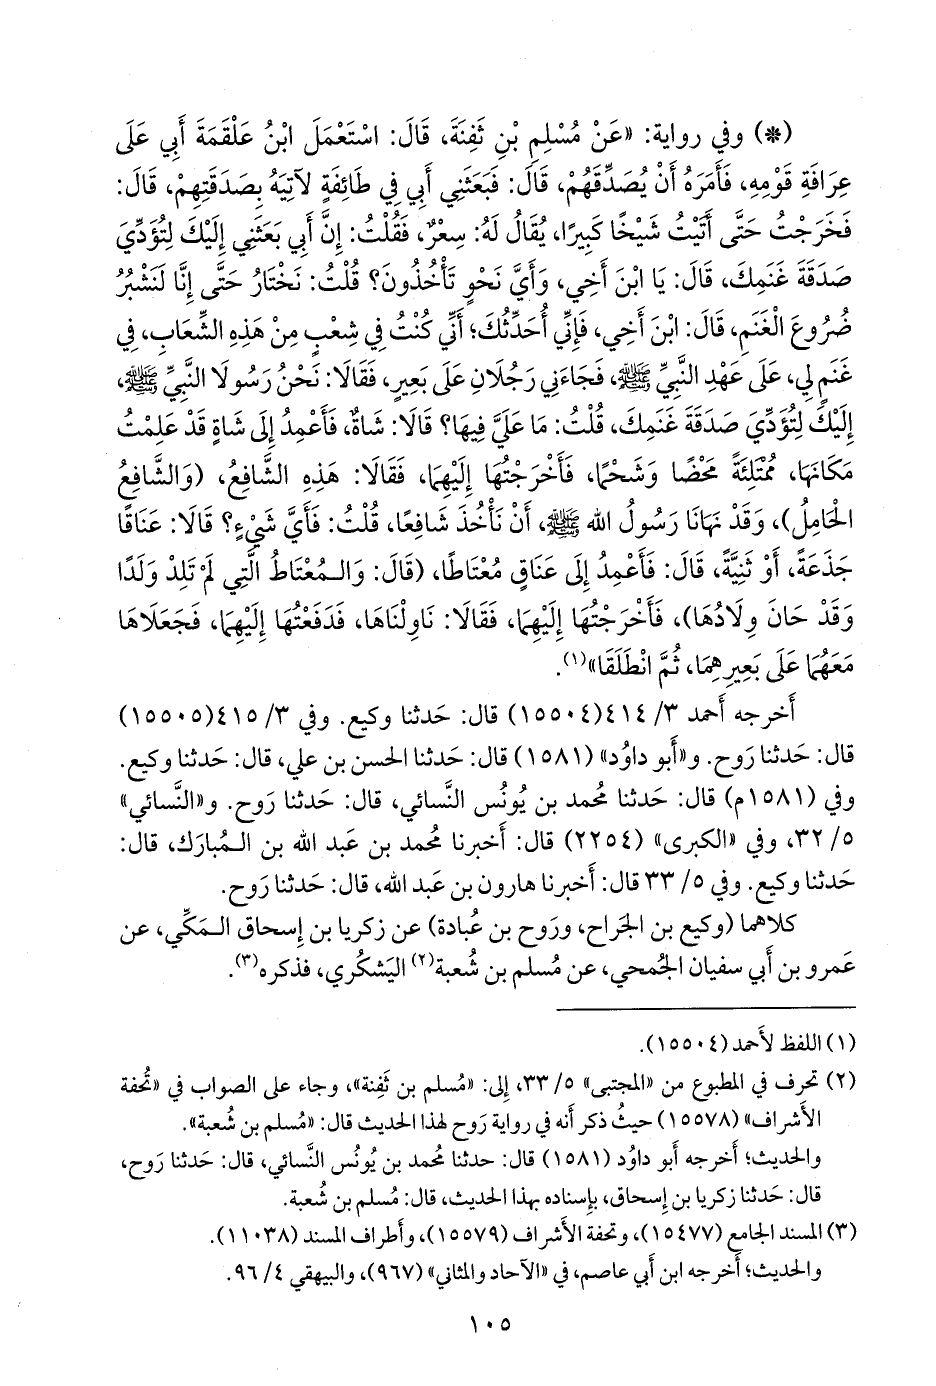 (*) وفي رواية: «عَنْ مُسْلِمِ بْنِ ثَفِنَةَ، قَالَ: اسْتَعْمَلَ ابْنُ عَلْقَمَةَ أَبِي عَلَى
عِرَافَةِ قَوْمِهِ، فَأَمَرَهُ أَنْ يُصَدِّقَهُمْ، قَالَ: فَبَعَثَنِي أَبِي فِي طَائِفَةٍ لآتِيَهُ بِصَدَقَتِهِمْ، قَالَ:
فَخَرَجْتُ حَتَّى أَتَيْتُ شَيْخًا كَبِيرًا، يُقَالُ لَهُ: سِعْرٌ، فَقُلْتُ: إِنَّ أَبِي بَعَثَنِي إِلَيْكَ لِتُؤَدِّيَ
صَدَقَةَ غَنَمِكَ، قَالَ: يَا ابْنَ أَخِي، وَأَيَّ نَحْوٍ تَأْخُذُونَ؟ قُلْتُ: نَخْتَارُ حَتَّى إِنَّا لَنَشْبُرُ
ضُرُوعَ الْغَنَمِ، قَالَ: ابْنَ أَخِي، فَإِنِّي أُحَدِّثُكَ؛ أَنِّي كُنْتُ فِي شِعْبٍ مِنْ هَذِهِ الشِّعَابِ، فِي
غَنَمٍ لِي، عَلَى عَهْدِ النَّبِيِّ ﷺ، فَجَاءَنِي رَجُلَانِ عَلَى بَعِيرٍ، فَقَالَا: نَحْنُ رَسُولَا النَّبِيِّ ﷺ،
إِلَيْكَ لِتُؤَدِّيَ صَدَقَةَ غَنَمِكَ، قُلْتُ: مَا عَلَيَّ فِيهَا؟ قَالَا: شَاةٌ، فَأَعْمِدُ إِلَى شَاةٍ قَدْ عَلِمْتُ
مَكَانَهَا، مُمْتَلِئَةً مَحْضًا وَشَحْمًا، فَأَخْرَجْتُهَا إِلَيْهِمَا، فَقَالَا: هَذِهِ الشَّافِعُ، (وَالشَّافِعُ
الْحَامِلُ)، وَقَدْ نَهَانَا رَسُولُ الله ﷺ، أَنْ نَأْخُذَ شَافِعًا، قُلْتُ: فَأَيَّ شَيْءٍ؟ قَالَا: عَنَاقًا
جَذَعَةً، أَوْ ثَنِيَّةً، قَالَ: فَأَعْمِدُ إِلَى عَنَاقٍ مُعْتَاطًا، (قَالَ: وَالـمُعْتَاطُ الَّتِي لَمْ تَلِدْ وَلَدًا
وَقَدْ حَانَ وِلَادُهَا)، فَأَخْرَجْتُهَا إِلَيْهِمَا، فَقَالَا: نَاوِلْنَاهَا، فَدَفَعْتُهَا إِلَيْهِمَا، فَجَعَلَاهَا
مَعَهُمَا عَلَى بَعِيرِهِمَا، ثُمَّ انْطَلَقَا»(١).
أَخرجه أَحمد ٣/ ٤١٤(١٥٥٠٤) قال: حَدثنا وكيع. وفي ٣/ ٤١٥(١٥٥٠٥)
قال: حَدثنا رَوح. و«أَبو داوُد» (١٥٨١) قال: حَدثنا الحسن بن علي، قال: حَدثنا وكيع.
وفي (١٥٨١م) قال: حَدثنا مُحمد بن يُونُس النَّسائي، قال: حَدثنا رَوح. و«النَّسائي»
٥/ ٣٢، وفي «الكبرى» (٢٢٥٤) قال: أَخبرنا مُحمد بن عَبد الله بن الـمُبارَك، قال:
حَدثنا وكيع. وفي ٥/ ٣٣ قال: أَخبرنا هارون بن عَبد الله، قال: حَدثنا رَوح.
كلاهما (وكيع بن الجَراح، ورَوح بن عُبادة) عن زكريا بن إِسحاق الـمَكِّي، عن
عَمرو بن أَبي سفيان الجُمحي، عن مُسلم بن شُعبة(٢) اليَشكُري، فذكره(٣).
(١) اللفظ لأَحمد (١٥٥٠٤).
(٢) تحرف في المطبوع من «المجتبى» ٥/ ٣٣، إِلى: «مُسلم بن ثَفِنة»، وجاء على الصواب في «تُحفة
الأَشراف» (١٥٥٧٨) حيثُ ذكر أَنه في رواية رَوح لهذا الحديث قال: «مُسلم بن شُعبة».
والحديث؛ أَخرجه أَبو داوُد (١٥٨١) قال: حدثنا مُحمد بن يُونُس النَّسائي، قال: حَدثنا رَوح،
قال: حَدثنا زكريا بن إِسحاق، بإِسناده بهذا الحديث، قال: مُسلم بن شُعبة.
(٣) المسند الجامع (١٥٤٧٧)، وتحفة الأَشراف (١٥٥٧٩)، وأَطراف المسند (١١٠٣٨).
والحديث؛ أَخرجه ابن أَبي عاصم، في «الآحاد والمثاني» (٩٦٧)، والبيهقي ٤/ ٩٦.
١٠٥